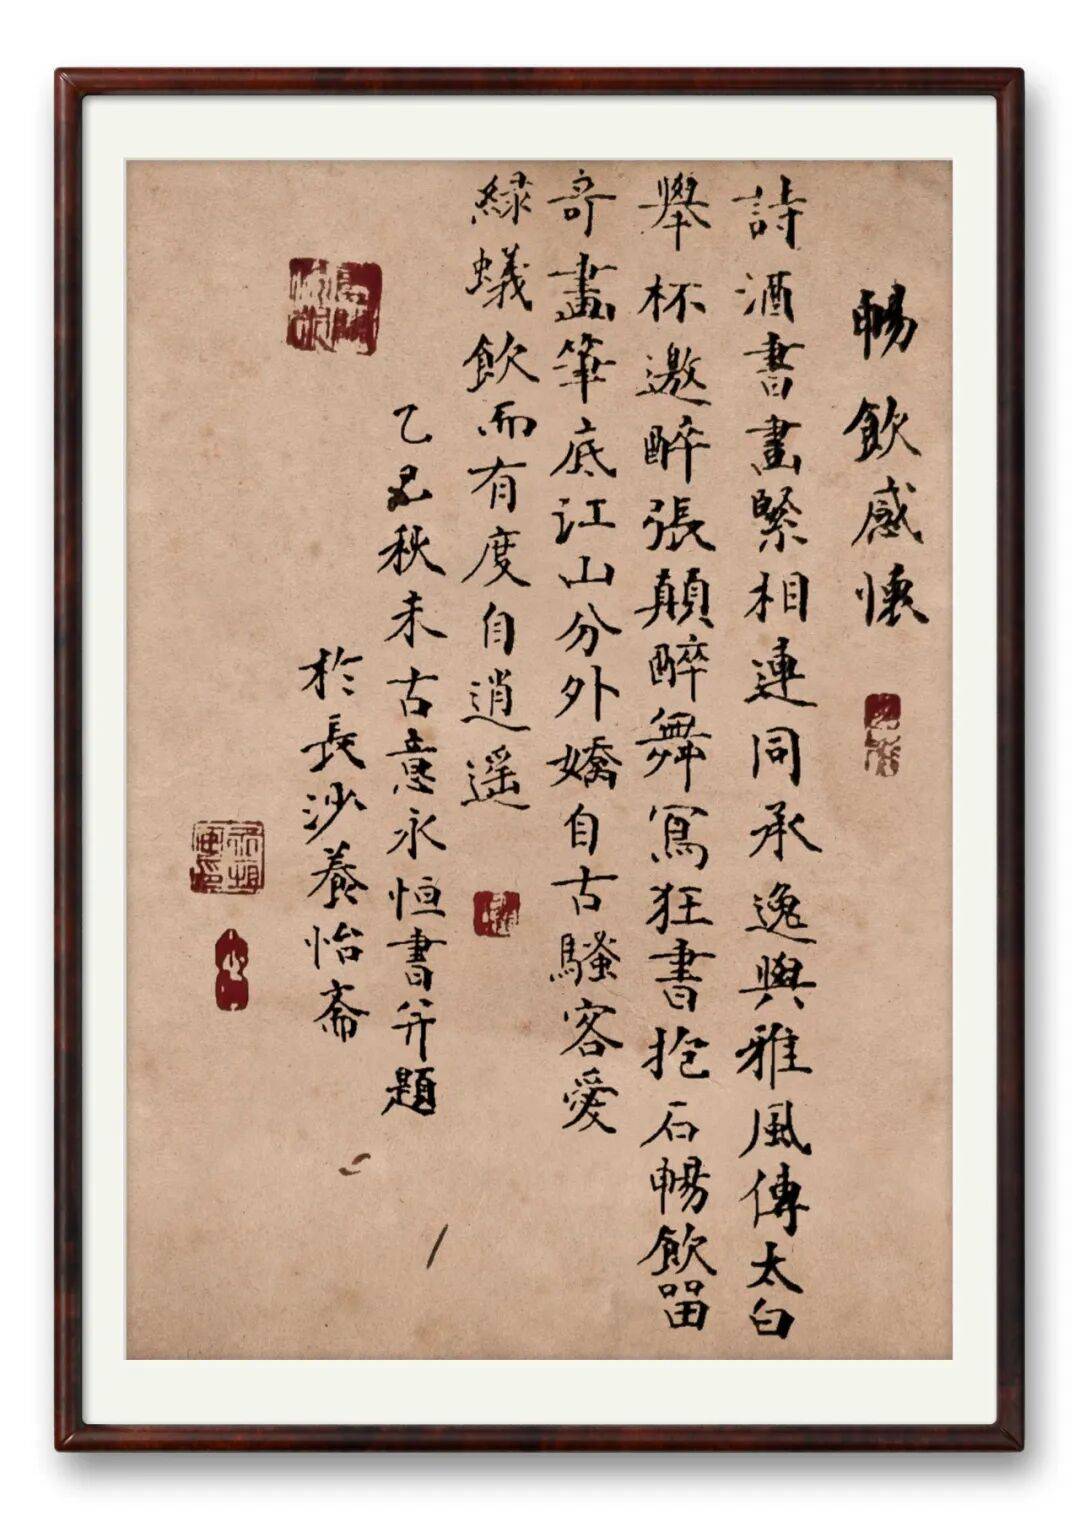 暢飲感懷
詩酒書畫緊相連同承逸興雅風傳太白
舉杯邀醉張顛醉舞寫狂書抱石暢飲留
奇畫筆底江山分外嬌自古騷客愛
綠蟻飲而有度自逍遥
乙巳秋末古意永恒書并題
於長沙養怡斋